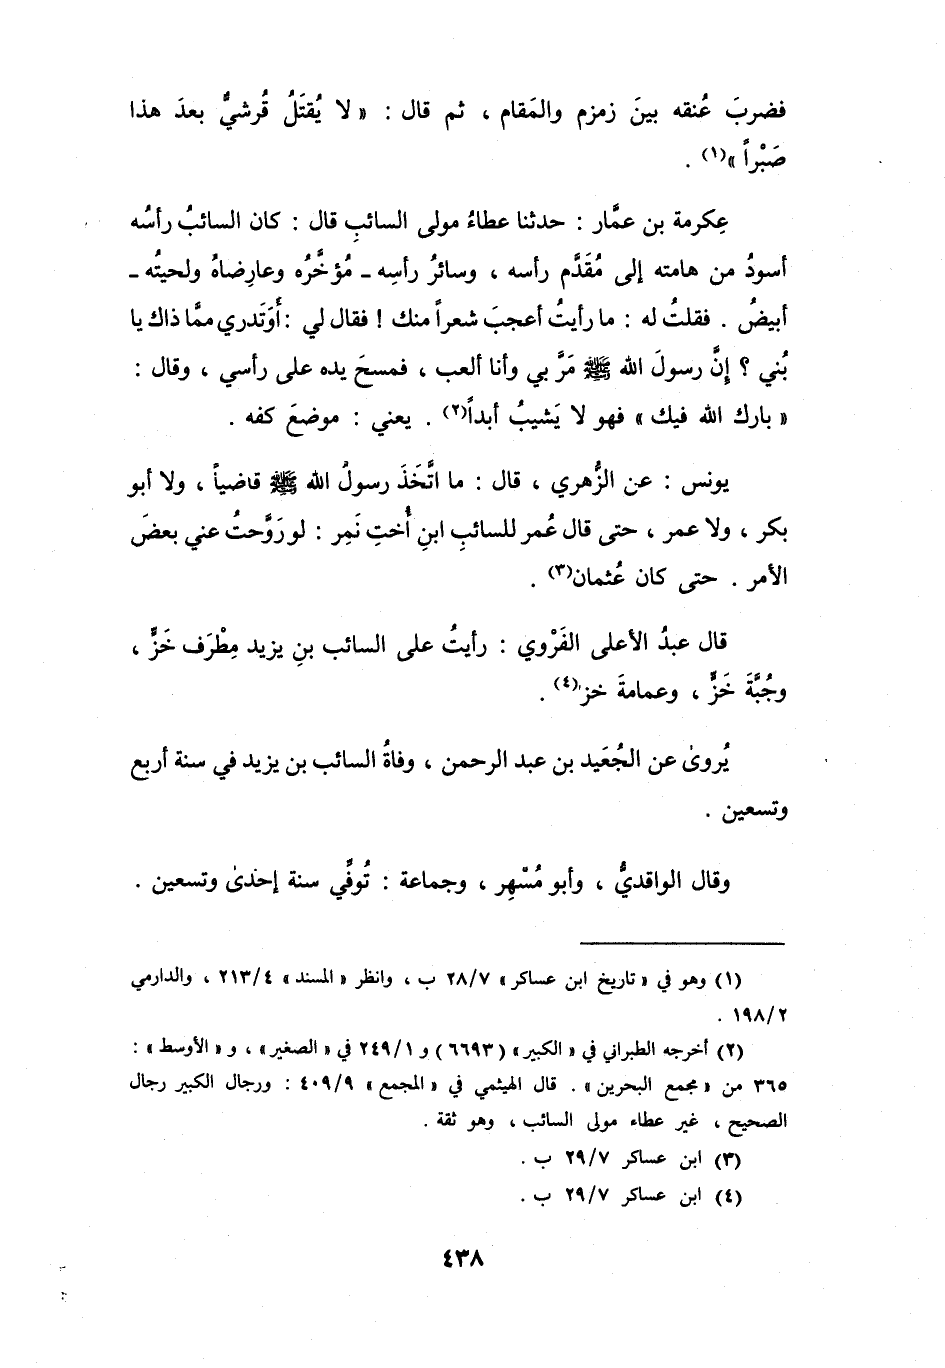 فضربَ عُنقه بينَ زمزم والمَقام ، ثم قال : « لا يُقتَلُ قُرشيٌّ بعدَ هذا
صَبْراً »(١) .
عِكرمة بن عمَّار : حدثنا عطاءُ مولى السائبِ قال : كان السائبُ رأسُه
أسودُ من هامته إلى مُقَدَّم رأسه ، وسائرُ رأسِه ـ مُؤخَّرُه وعارِضاهُ ولحيتُه ـ
أبيضُ . فقلتُ له : ما رأيتُ أعجبَ شعراً منك ! فقال لي : أَوَتَدري ممَّا ذاك يا
بُني ؟ إنَّ رسولَ الله ﷺ مَرَّ بي وأنا ألعب ، فمسحَ يده على رأسي ، وقال :
« بارك الله فيك » فهو لا يَشيبُ أبداً(٢) . يعني : موضعَ كفه .
يونس : عن الزُّهري ، قال : ما اتَّخَذَ رسولُ الله ﷺ قاضياً ، ولا أبو
بكر ، ولا عمر ، حتى قال عُمر للسائبِ ابنِ أُختِ نَمِر : لو رَوَّحتُ عني بعضَ
الأمر . حتى كان عُثمان(٣) .
قال عبدُ الأعلى الفَرْوي : رأيتُ على السائب بنِ يزيد مِطْرَف خَزٍّ ،
وجُبَّةَ خَزٍّ ، وعمامةَ خز(٤) .
يُروىٰ عن الجُعَيد بن عبد الرحمن ، وفاةُ السائب بن يزيد في سنة أربع
وتسعين .
وقال الواقديُّ ، وأبو مُسْهِر ، وجماعة : تُوفِّي سنة إحدىٰ وتسعين .
(١) وهو في « تاريخ ابن عساكر » ٢٨/٧ ب ، وانظر « المسند » ٢١٣/٤ ، والدارمي
١٩٨/٢ .
(٢) أخرجه الطبراني في « الكبير » (٦٦٩٣) و ٢٤٩/١ في « الصغير » ، و « الأوسط » :
٣٦٥ من « مجمع البحرين » . قال الهيثمي في « المجمع » ٤٠٩/٩ : ورجال الكبير رجال
الصحيح ، غير عطاء مولى السائب ، وهو ثقة .
(٣) ابن عساكر ٢٩/٧ ب .
(٤) ابن عساكر ٢٩/٧ ب .
٤٣٨